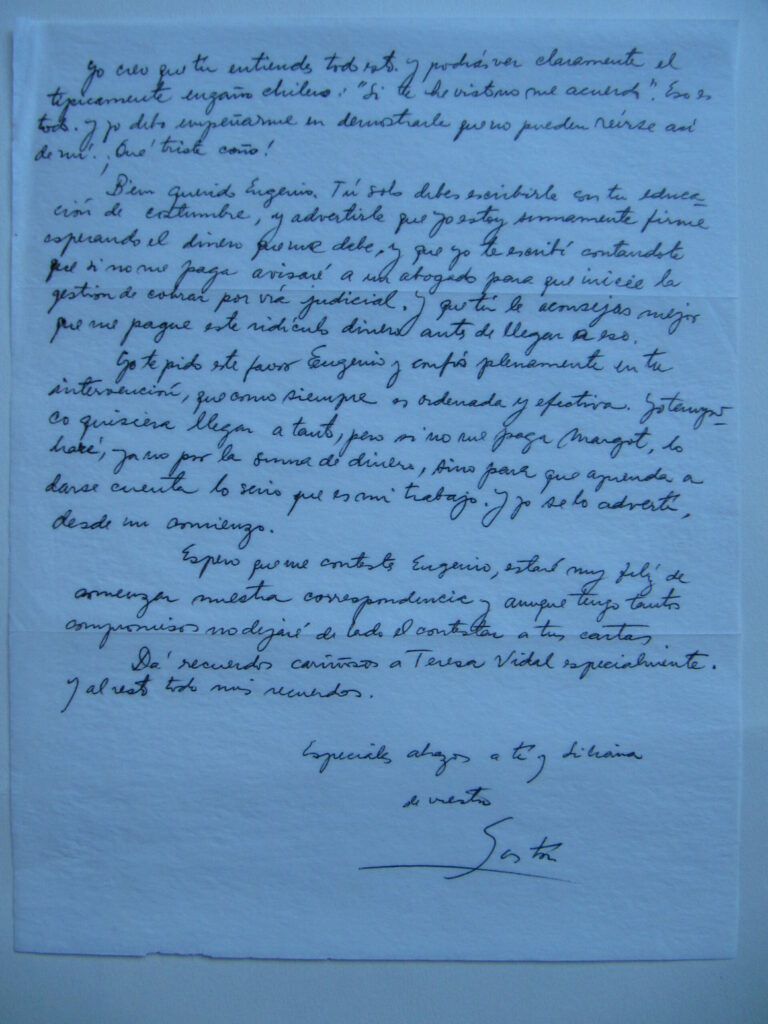 Yo creo que tú entiendes todo esto. y podrás ver claramente el
típicamente engaño chileno: "Si te he visto no me acuerdo". Eso es
todo. y yo debo empeñarme en demostrarle que no pueden reírse así
de mí. ¡Qué triste coño!
Bien querido Eugenio. Tú solo debes escribirle con tu educa-
ción de costumbre, y advertirle que yo estoy sumamente firme
esperando el dinero que me debe, y que yo te escribí contandote
que si no me paga avisaré a un abogado para que inicie la
gestión de cobrar por vía judicial. Y que tú le aconsejas mejor
que me pague este ridículo dinero antes de llegar a eso.
Yo te pido este favor Eugenio y confío plenamente en tu
intervención, que como siempre es ordenada y efectiva. Yo tampo-
co quisiera llegar a tanto, pero si no me paga Margot, lo
haré, ya no por la suma de dinero, sino para que aprenda a
darse cuenta lo serio que es mi trabajo. Y yo se lo advertí,
desde un comienzo.
Espero que me conteste Eugenio, estaré muy felíz de
comenzar nuestra correspondencia y aunque tengo tantos
compromisos no dejaré de lado el contestar a tus cartas
Dá recuerdos cariñosos a Teresa Vidal especialmente.
Y al resto todo mis recuerdos.
Especiales abrazos a tí y Liliana
de vuestro
Gastón